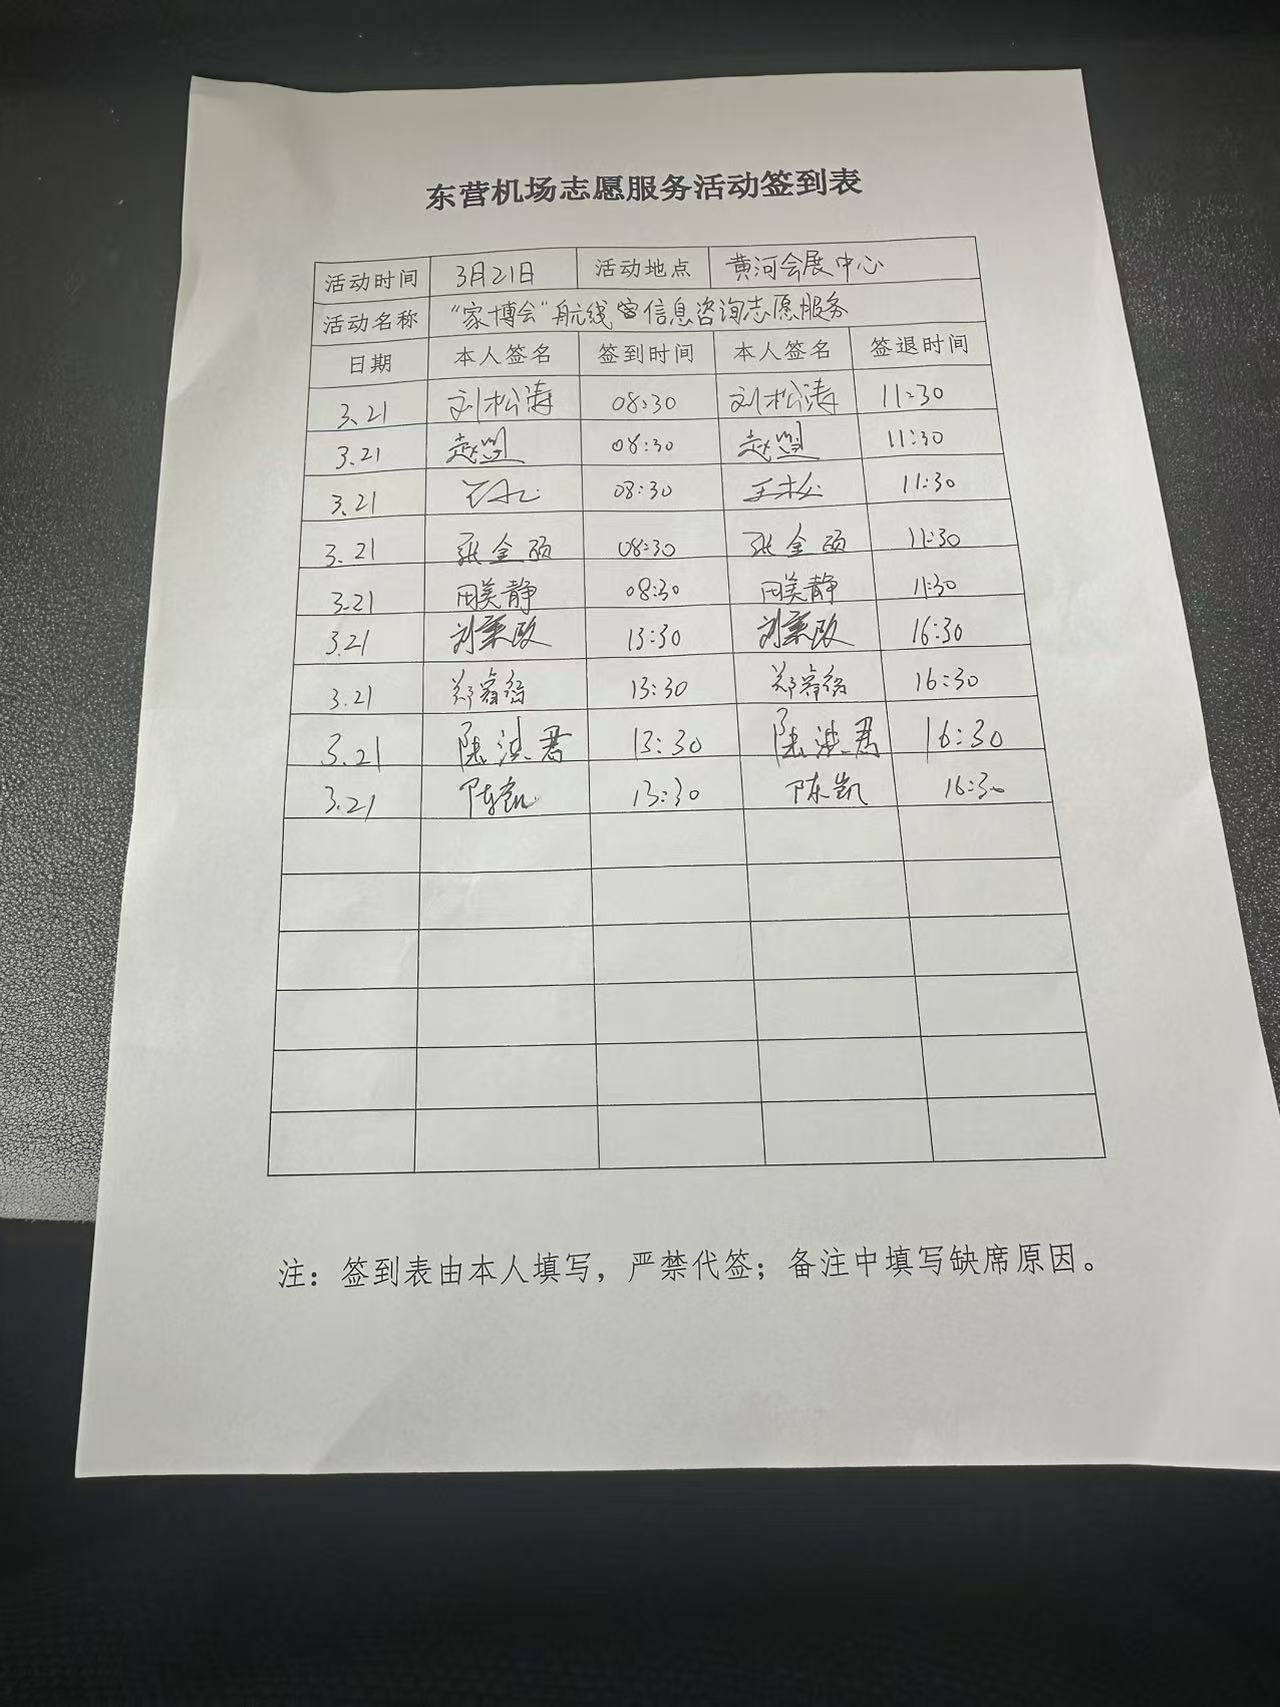 东营机场志愿服务活动签到表
活动时间 3月21日 活动地点 黄河会展中心
活动名称 “家博会”航线信息咨询志愿服务
日期 本人签名 签到时间 本人签名 签退时间
3.21 刘松涛 08:30 刘松涛 11:30
3.21 08:30 11:30
3.21 08:30 王松 11:30
3.21 张金硕 08:30 张金硕 11:30
3.21 田美静 08:30 田美静 11:30
3.21 13:30 16:30
3.21 13:30 16:30
3.21 13:30 16:30
3.21 陈凯 13:30 陈凯 16:30
注：签到表由本人填写，严禁代签；备注中填写缺席原因。